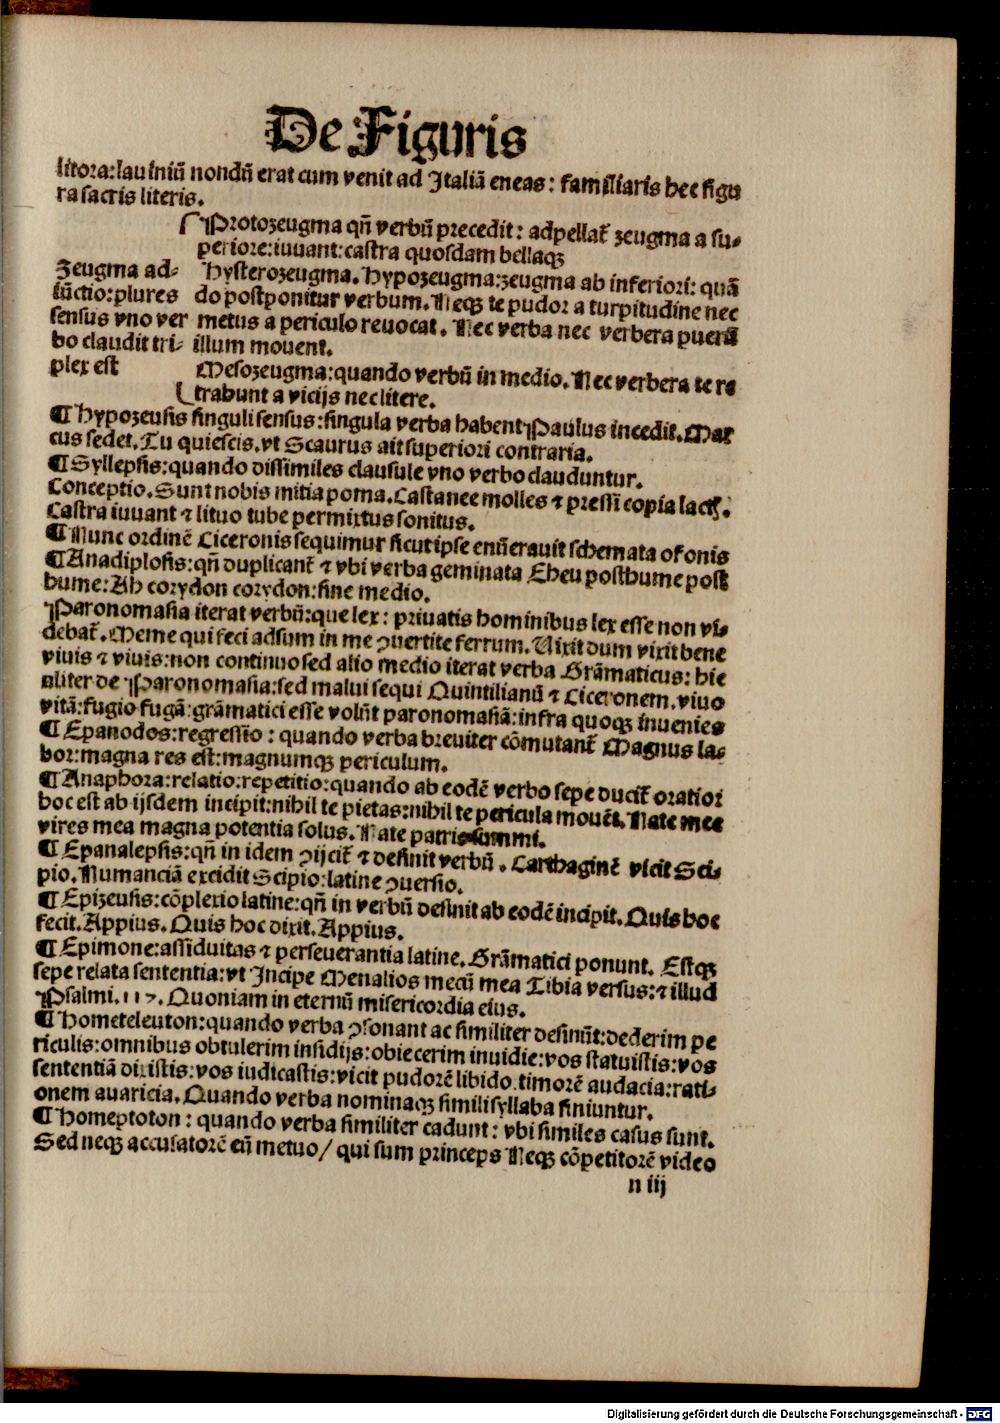 De Figuris
litora:lauiniū nondū erat cum venit ad Italiā eneas: familiaris hec figu
ra sacris literis.
Protozeugma qn̄ verbū precedit: adpellat̄ zeugma a su-
periore:iuuant:castra quosdam bellaqꝫ
Zeugma ad-
iūctio:plures
sensus vno ver
bo claudit tri-
plex est
Hysterozeugma. Hypozeugma:zeugma ab inferiori: quā
do postponitur verbum. Neqꝫ te pudor a turpitudine nec
metus a periculo reuocat. Nec verba nec verbera puerū
illum mouent.
Mesozeugma:quando verbū in medio. Nec verbera te re
trabunt a vicijs nec litere.
¶ Hypozeusis singuli sensus:singula verba habent Paulus incedit. Mar
cus sedet. Tu quiescis. vt Scaurus ait superiori contraria.
¶ Syllepsis:quando dissimiles clausule vno verbo clauduntur.
Conceptio. Sunt nobis mitia poma. Castanee molles ⁊ pressi copia lact̄.
Castra iuuant ⁊ lituo tube permixtus sonitus.
¶ Nunc ordinē Ciceronis sequimur sicut ipse enūerauit schemata oꝛonis
¶ Anadiplosis:qn̄ duplicant̄ ⁊ vbi verba geminata Eheu posthume post
hume: Ah corydon corydon:sine medio.
Paronomasia iterat verbū:que lex: priuatis hominibus lex esse non vi-
debat̄. Meme qui feci adsum in me ɔuertite ferrum. Uixit dum vixit bene
viuis ⁊ viuis:non continuo sed alio medio iterat verba Grāmaticus: hic
aliter de Paronomasia:sed malui sequi Quintilianū ⁊ Ciceronem. viuo
vitā:fugio fugā:grāmatici esse volūt paronomasiā:infra quoqꝫ inuenies
¶ Epanodos:regressio: quando verba breuiter cōmutant̄ Magnus la-
bor:magna res est:magnumqꝫ periculum.
¶ Anaphora:relatio:repetitio:quando ab eodē verbo sepe ducit̄ oratior
hoc est ab ijsdem incipit:nihil te pietas:nihil te pericula mouēt. Nate mee
vires mea magna potentia solus. Nate patris summi.
¶ Epanalepsis:qn̄ in idem ɔijcit̄ ⁊ desinit verbū. Carthaginē vicit Sci-
pio. Numanciā excidit Scipio:latine ɔuersio.
¶ Epizeusis:cōplexio latine:qn̄ in verbū desinit ab eodē incipit. Quis hoc
fecit. Appius. Quis hoc dixit. Appius.
¶ Epimone:assiduitas ⁊ perseuerantia latine. Grāmatici ponunt. Estqꝫ
sepe relata sententia:vt Incipe Menalios mecū mea Tibia versus:⁊ illud
Psalmi. 117. Quoniam in eternū misericordia eius.
¶ Hometeleuton:quando verba ɔsonant ac similiter desinūt:dederim pe
riculis:omnibus obtulerim insidijs:obiecerim inuidie:vos statuistis:vos
sententiā dixistis:vos iudicastis:vicit pudorē libido.timorē audacia:rati-
onem auaricia. Quando verba nominaqꝫ simili syllaba finiuntur.
¶ Homeptoton: quando verba similiter cadunt: vbi similes casus sunt.
Sed neqꝫ accusatorē eū metuo/ qui sum princeps Neqꝫ cōpetitorē video
n iij
Digitalisierung gefördert durch die Deutsche Forschungsgemeinschaft - DFG